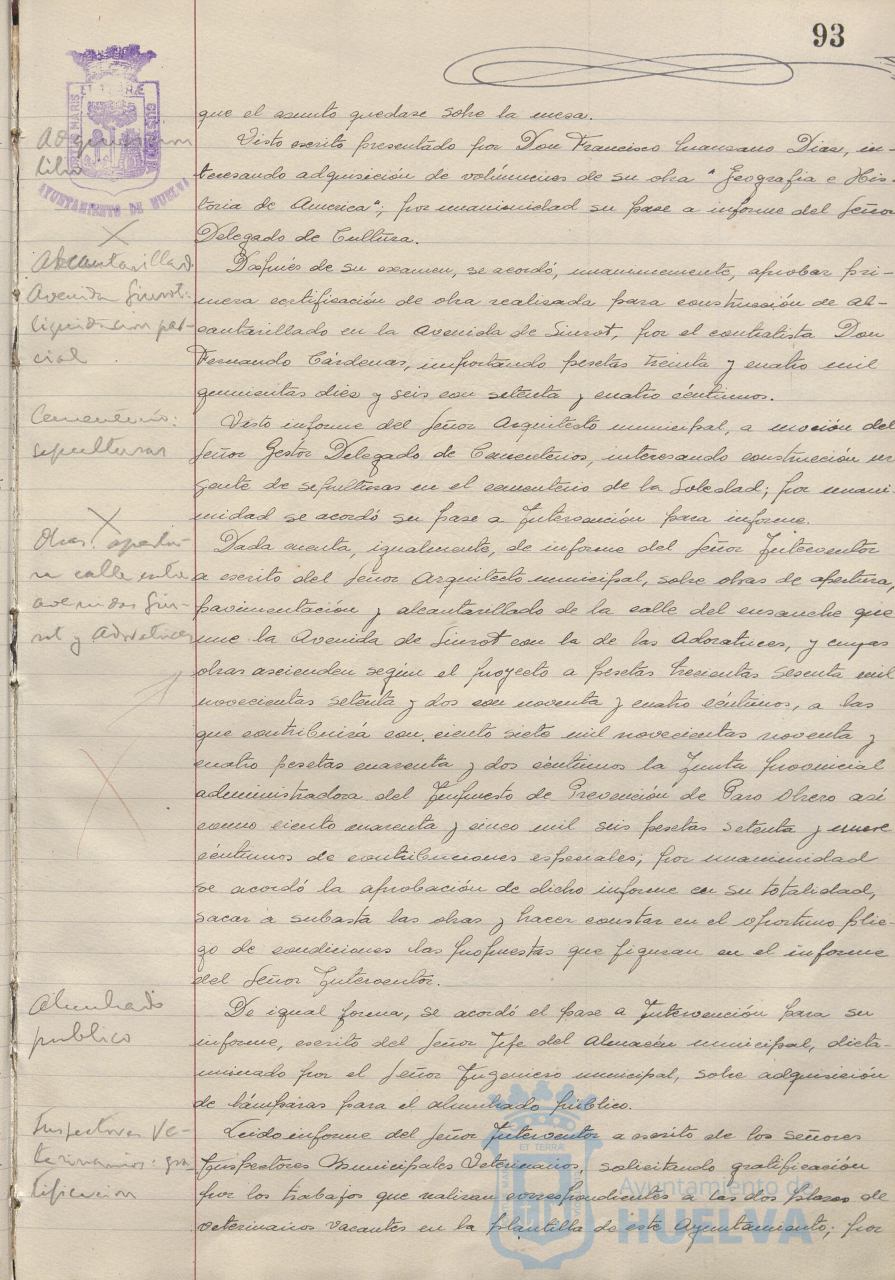 93
que el asunto quedase sobre la mesa.
Adquisicion
libro
Visto escrito presentado por Don Francisco Manzano Dias, in-
teresando adquisición de volúmenes de su obra "Geografia e His-
toria de America"; por unanimidad su pase a informe del Señor
Delegado de Cultura.
Alcantarillado
Avenida Siurot:
liquidacion par-
cial
Después de su examen, se acordó, unanimemente, aprobar pri-
mera certificación de obra realizada para construcción de al-
cantarillado en la Avenida de Siurot, por el contratista Don
Fernando Cárdenas, importando pesetas treinta y cuatro mil
quinientas diez y seis con setenta y cuatro céntimos.
Cementerio:
sepulturas
Visto informe del Señor Arquitecto municipal, a moción del
Señor Gestor Delegado de Cementerios, interesando construcción ur
gente de sepulturas en el cementerio de la Soledad; por unani-
midad se acordó su pase a Intervención para informe.
Obras: apertu-
ra calle entre
avenidas Siu-
rot y Adoratrices
Dada cuenta, igualmente, de informe del Señor Interventor
a escrito del Señor Arquitecto municipal, sobre obras de apertura,
pavimentación y alcantarillado de la calle del ensanche que
une la Avenida de Siurot con la de las Adoratrices, y cuyas
obras ascienden según el proyecto a pesetas trecientas sesenta mil
novecientas setenta y dos con noventa y cuatro céntimos, a las
que contribuirá con ciento siete mil novecientas noventa y
cuatro pesetas cuarenta y dos céntimos la Junta provincial
administradora del Impuesto de Prevención de Paro Obrero así
como ciento cuarenta y cinco mil seis pesetas setenta y nueve
céntimos de contribuciones especiales; por unanimidad
se acordó la aprobación de dicho informe en su totalidad,
sacar a subasta las obras y hacer constar en el oportuno plie-
go de condiciones las propuestas que figuran en el informe
del Señor Interventor.
Alumbrado
publico
De igual forma, se acordó el pase a Intervención para su
informe, escrito del Señor Jefe del Almacén municipal, dicta-
minado por el Señor Ingeniero municipal, sobre adquisición
de lámparas para el alumbrado público.
Inspectores Ve-
terinarios: gra-
tificacion
Leido informe del Señor Interventor a escrito de los señores
Inspectores Municipales Veterinarios, solicitando gratificación
por los trabajos que realizan correspondientes a las dos plazas de
veterinarios vacantes en la plantilla de este Ayuntamiento; por
AYUNTAMIENTO DE HUELVA
Ayuntamiento de
HUELVA